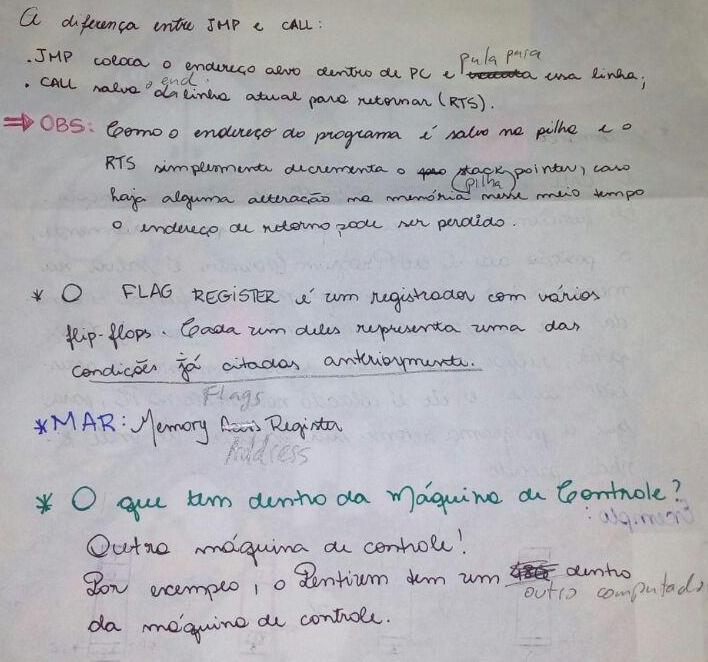 A diferença entre JMP e CALL:
. JMP coloca o endereço alvo dentro de PC e pula para essa linha;
. CALL salva o end. da linha atual para retornar (RTS).
⇒ OBS: Como o endereço do programa é salvo na pilha e o
RTS simplesmente decrementa o stack pointer, caso
haja alguma alteração na memória (pilha) nesse meio tempo
o endereço de retorno pode ser perdido.
* O FLAG REGISTER é um registrador com vários
flip-flops. Cada um deles representa uma das
condições já citadas anteriormente.
Flags
*MAR: Memory Register
Address
* O que tem dentro da Máquina de Controle?
Outra máquina de controle!
Por exemplo, o Pentium tem um dentro
outro computador
da máquina de controle.
Exemplo